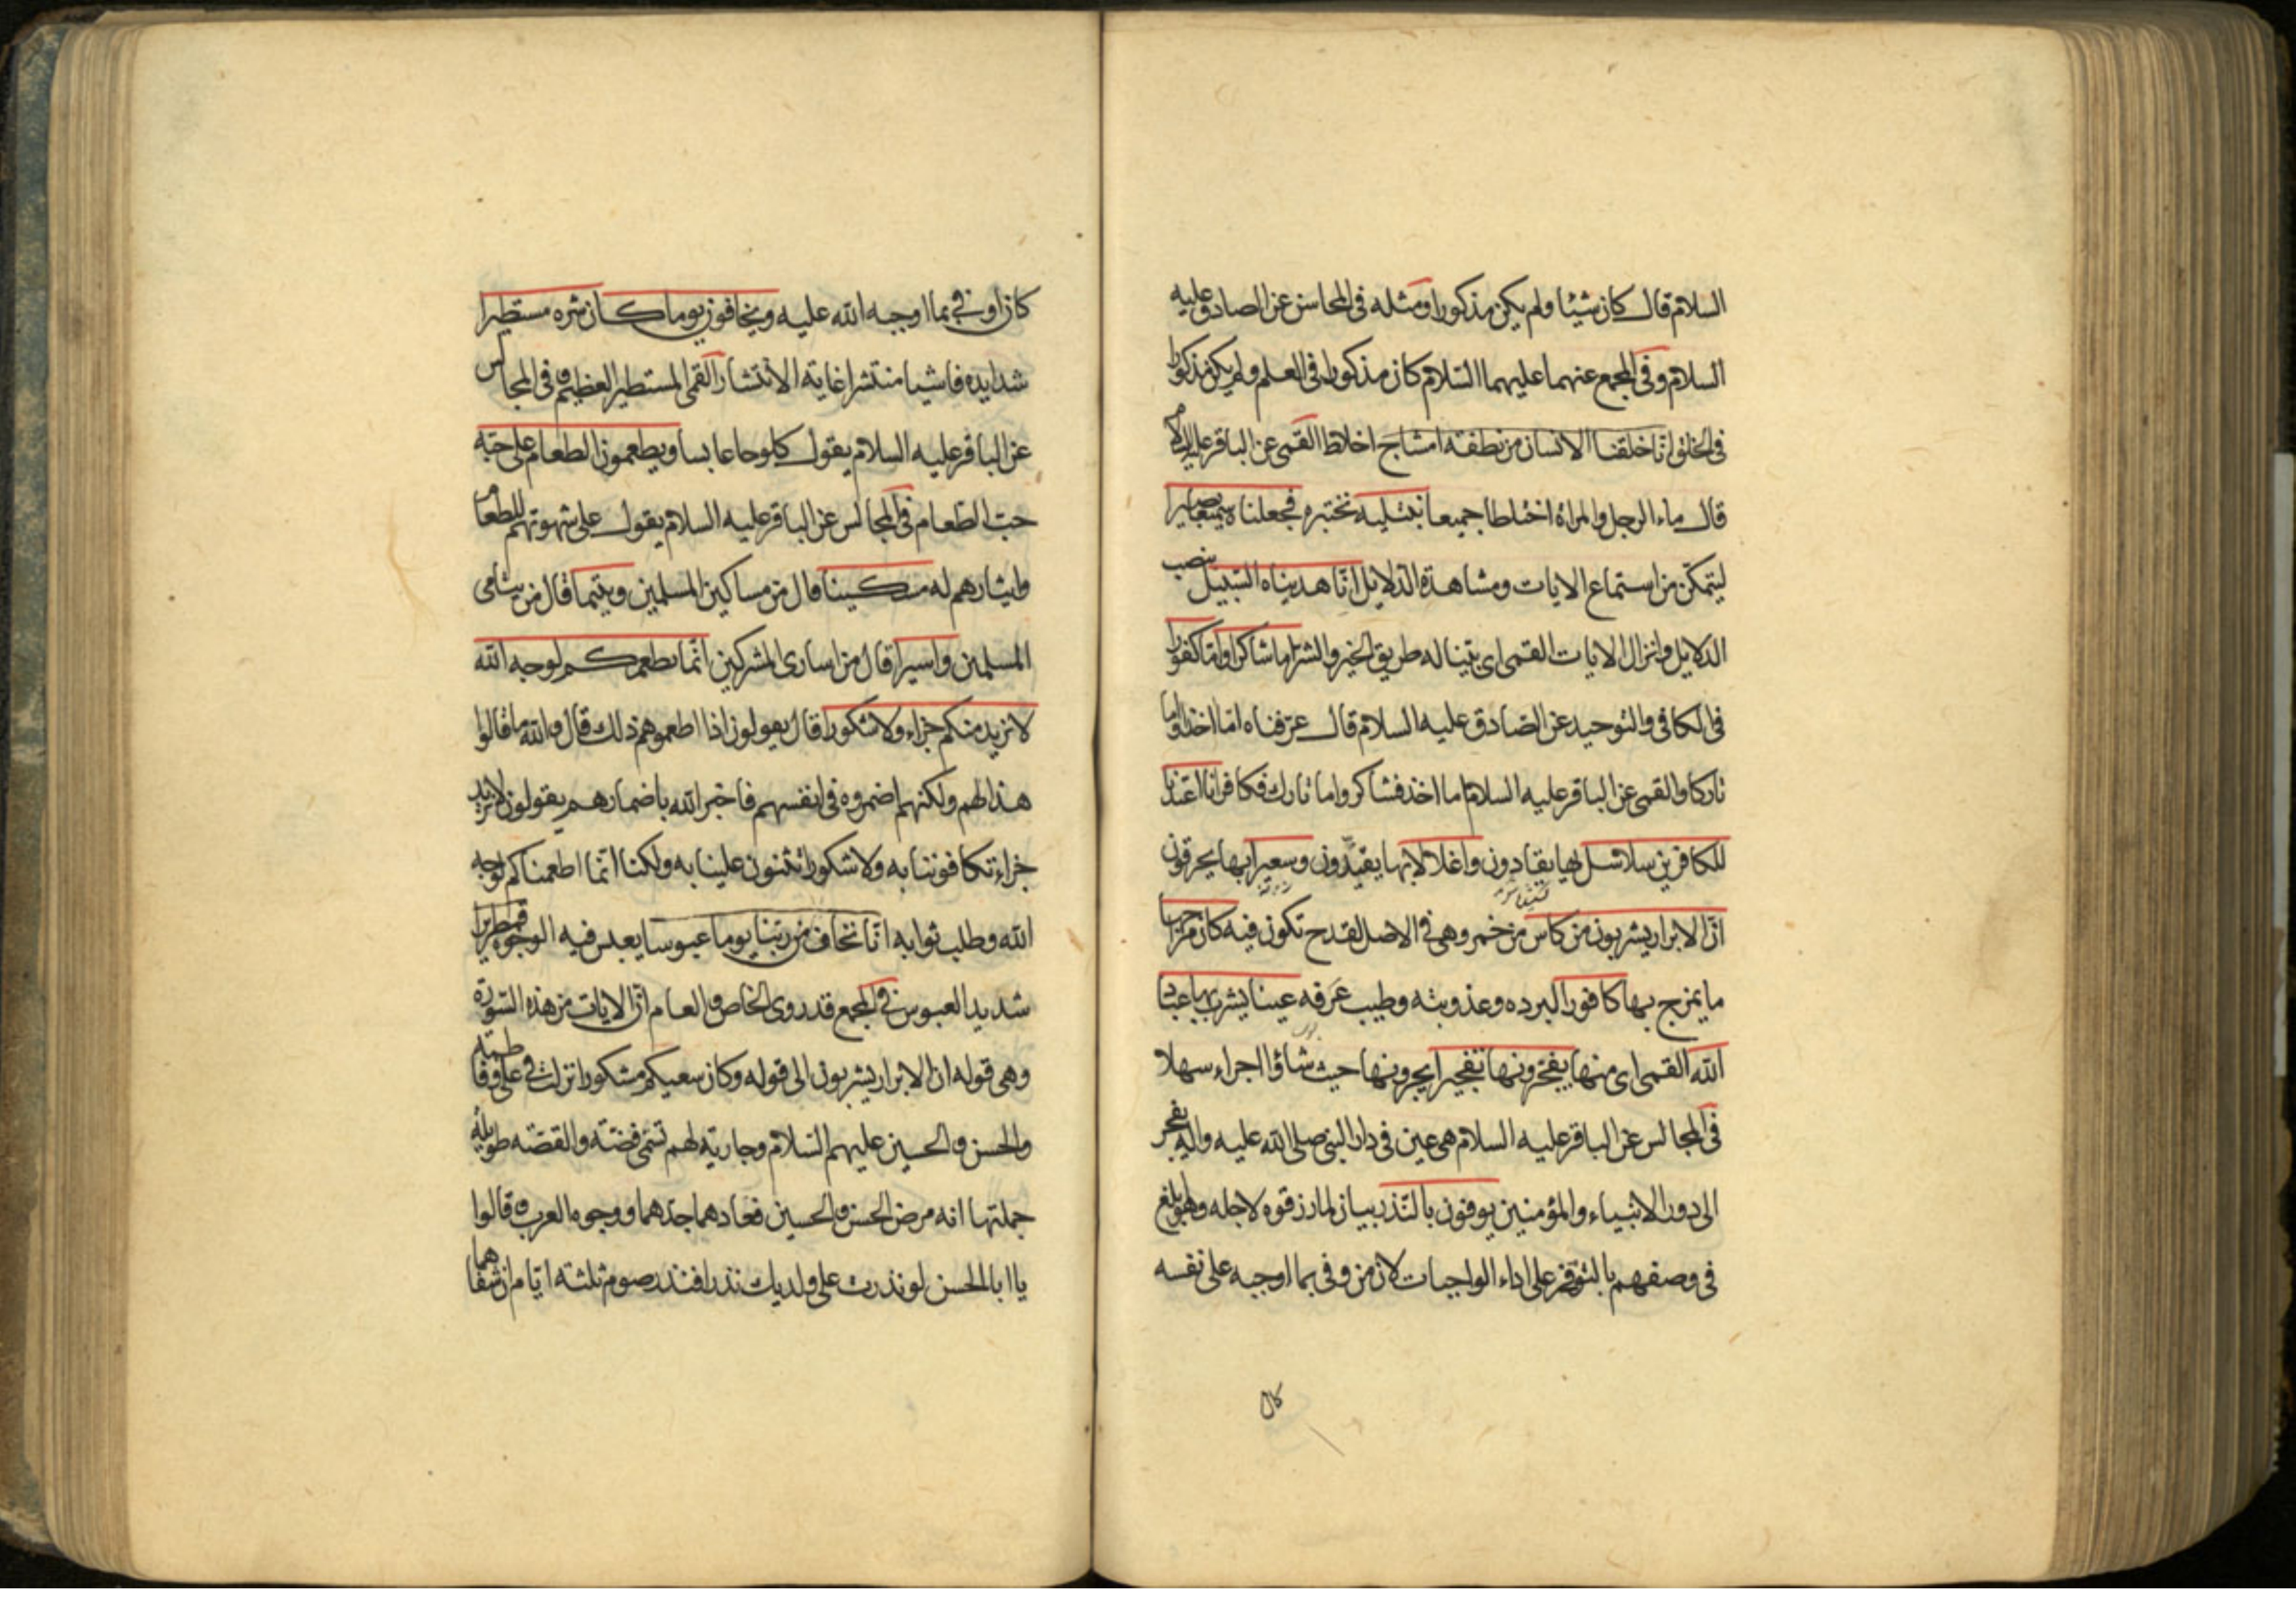 السلام قال كان شيئا ولم يكن مذكورا ومثله في المحاسن عن الصادق عليه
السلام وفي المجمع عنهما عليهما السلام كان مذكورا في العلم ولم يكن مذكورا
في الخلق انا خلقنا الانسان من نطفة امشاج اخلاط القمى عن الباقر عليه السلام
قال ماء الرجل والمراة اختلطا جميعا نبتليه نختبره فجعلناه سميعا بصيرا
ليتمكن من استماع الايات ومشاهدة الدلايل انا هديناه السبيل بنصب
الدلايل وانزال الايات القمى اى بينا له طريق الخير والشر اما شاكرا واما كفورا
في الكافى والتوحيد عن الصادق عليه السلام قال عرفناه اما اخذا واما
تاركا والقمى عن الباقر عليه السلام اما اخذ فشاكر واما تارك فكافر انا اعتدنا
للكافرين سلاسل بها يقادون واغلالا بها يقيدون وسعيرا بها يحرقون
ان الابرار يشربون من كاس من خمر وهى في الاصل لقدح تكون فيه كان مزاجها
ما يمزج بها كافورا لبرده وعذوبته وطيب عرفه عينا يشرب بها عباد
الله القمى اى منها يفجرونها تفجيرا يجرونها حيث شاؤا اجراء سهلا
في المجالس عن الباقر عليه السلام هى عين في دار النبي صلى الله عليه واله يفجر
الى دور الانبياء والمؤمنين يوفون بالنذر بيان لما رزقوه لاجله وهو ابلغ
في وصفهم بالتوفر على اداء الواجبات لان من وفى بما اوجبه على نفسه
كان
كان اوفي بما اوجبه الله عليه ويخافون يوما كان شره مستطيرا
شدايده فاشيا منتشرا غاية الانتشار القمى المستطير العظيم وفي المجالس
عن الباقر عليه السلام يقول كلوحا عابسا ويطعمون الطعام على حبه
حب الطعام في المجالس عن الباقر عليه السلام يقول على شهوتهم للطعام
وايثارهم له مسكينا قال من مساكين المسلمين ويتيما قال من يتامى
المسلمين واسيرا قال من اسارى المشركين انما نطعمكم لوجه الله
لا نريد منكم جزاء ولا شكورا قال يقولون اذا اطعموهم ذلك قال والله ما قالوا
هذا لهم ولكنهم اضمروه في انفسهم فاخبر الله باضمارهم يقولون لا نريد
جزاء تكافوننا به ولا شكورا تثنون علينا به ولكنا انما اطعمناكم لوجه
الله وطلب ثوابه انا نخاف من ربنا يوما عبوسا يعبس فيه الوجوه قمطريرا
شديد العبوس في المجمع قد روى الخاص والعام ان الايات من هذه السورة
وهى قوله ان الابرار يشربون الى قوله وكان سعيكم مشكورا نزلت في على وفاطمة
والحسن والحسين عليهم السلام وجارية لهم تسمى فضة والقصة طويلة
جملتها انه مرض الحسن والحسين فعادهما جدهما ووجوه العرب وقالوا
يا ابا الحسن لو نذرت على ولديك نذرا فنذر صوم ثلثة ايام ان شفاهما